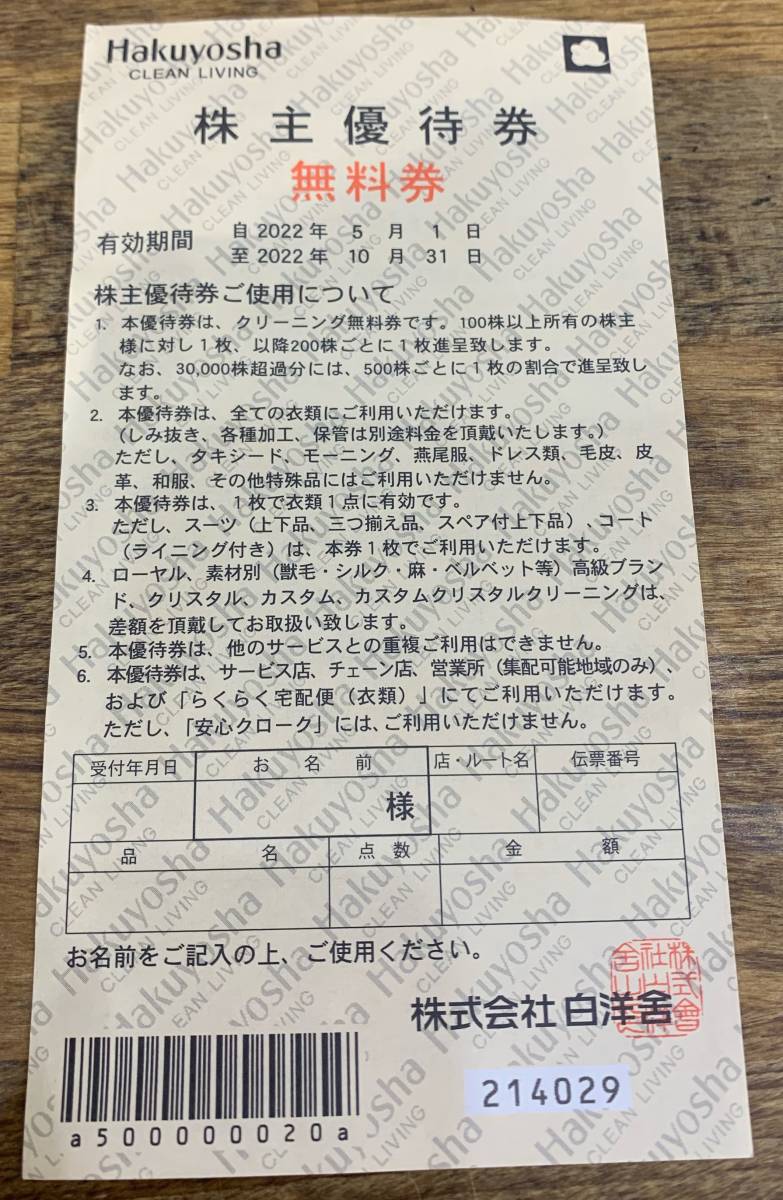 Hakuyosha
CLEAN LIVING
株主優待券
無料券
有効期間 自 2022 年 5 月 1 日
至 2022 年 10 月 31 日
株主優待券ご使用について
1. 本優待券は、クリーニング無料券です。100株以上所有の株主
様に対し1枚、以降200株ごとに1枚進呈致します。
なお、30,000株超過分には、500株ごとに1枚の割合で進呈致し
ます。
2. 本優待券は、全ての衣類にご利用いただけます。
(しみ抜き、各種加工、保管は別途料金を頂戴いたします。)
ただし、タキシード、モーニング、燕尾服、ドレス類、毛皮、皮
革、和服、その他特殊品にはご利用いただけません。
3. 本優待券は、1枚で衣類1点に有効です。
ただし、スーツ(上下品、三つ揃え品、スペア付上下品)、コート
(ライニング付き)は、本券1枚でご利用いただけます。
4. ローヤル、素材別(獣毛・シルク・麻・ベルベット等)高級ブラン
ド、クリスタル、カスタム、カスタムクリスタルクリーニングは、
差額を頂戴してお取扱い致します。
5. 本優待券は、他のサービスとの重複ご利用はできません。
6. 本優待券は、サービス店、チェーン店、営業所(集配可能地域のみ)、
および「らくらく宅配便(衣類)」にてご利用いただけます。
ただし、「安心クローク」には、ご利用いただけません。
受付年月日 お名前 店・ルート名 伝票番号
様
品名 点数 金額
お名前をご記入の上、ご使用ください。
株式会社 白洋舍
214029
a500000020a